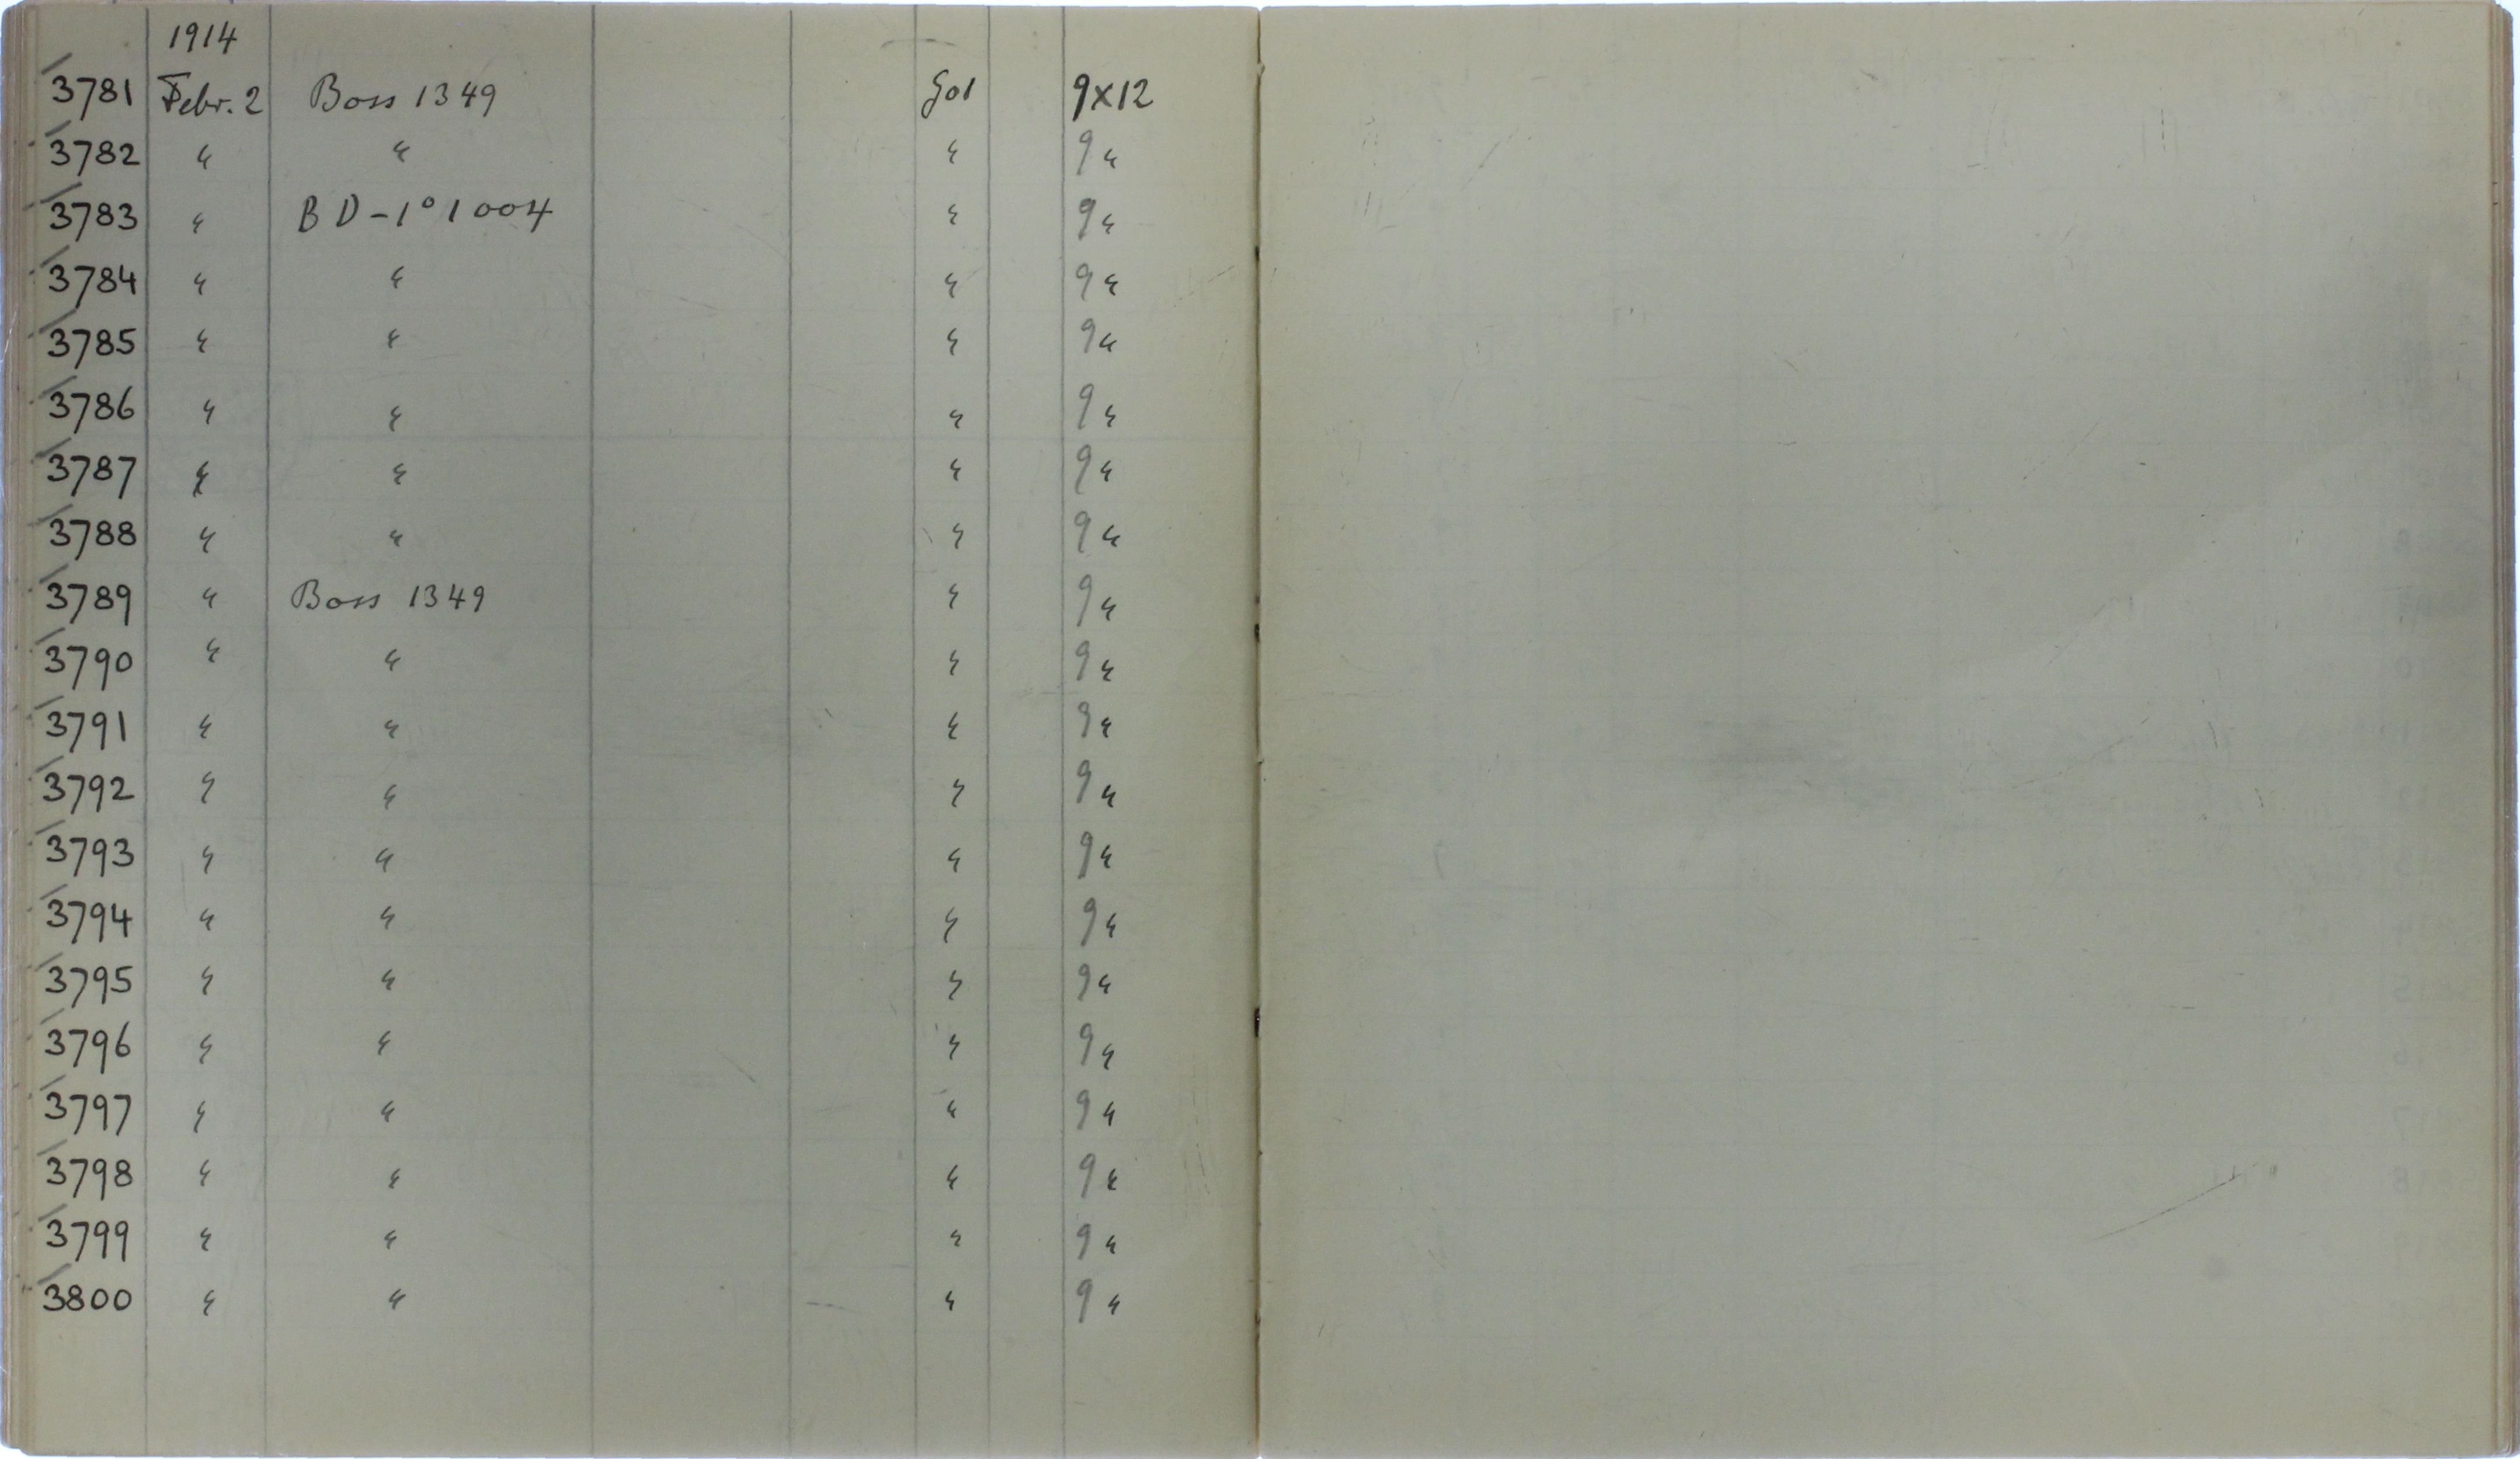 1914
3781 Febr. 2 Boss 1349 Gol 9x12
3782 " " " 9 "
3783 " BD -1° 1004 " 9 "
3784 " " " 9 "
3785 " " " 9 "
3786 " " " 9 "
3787 " " " 9 "
3788 " " " 9 "
3789 " Boss 1349 " 9 "
3790 " " " 9 "
3791 " " " 9 "
3792 " " " 9 "
3793 " " " 9 "
3794 " " " 9 "
3795 " " " 9 "
3796 " " " 9 "
3797 " " " 9 "
3798 " " " 9 "
3799 " " " 9 "
3800 " " " 9 "